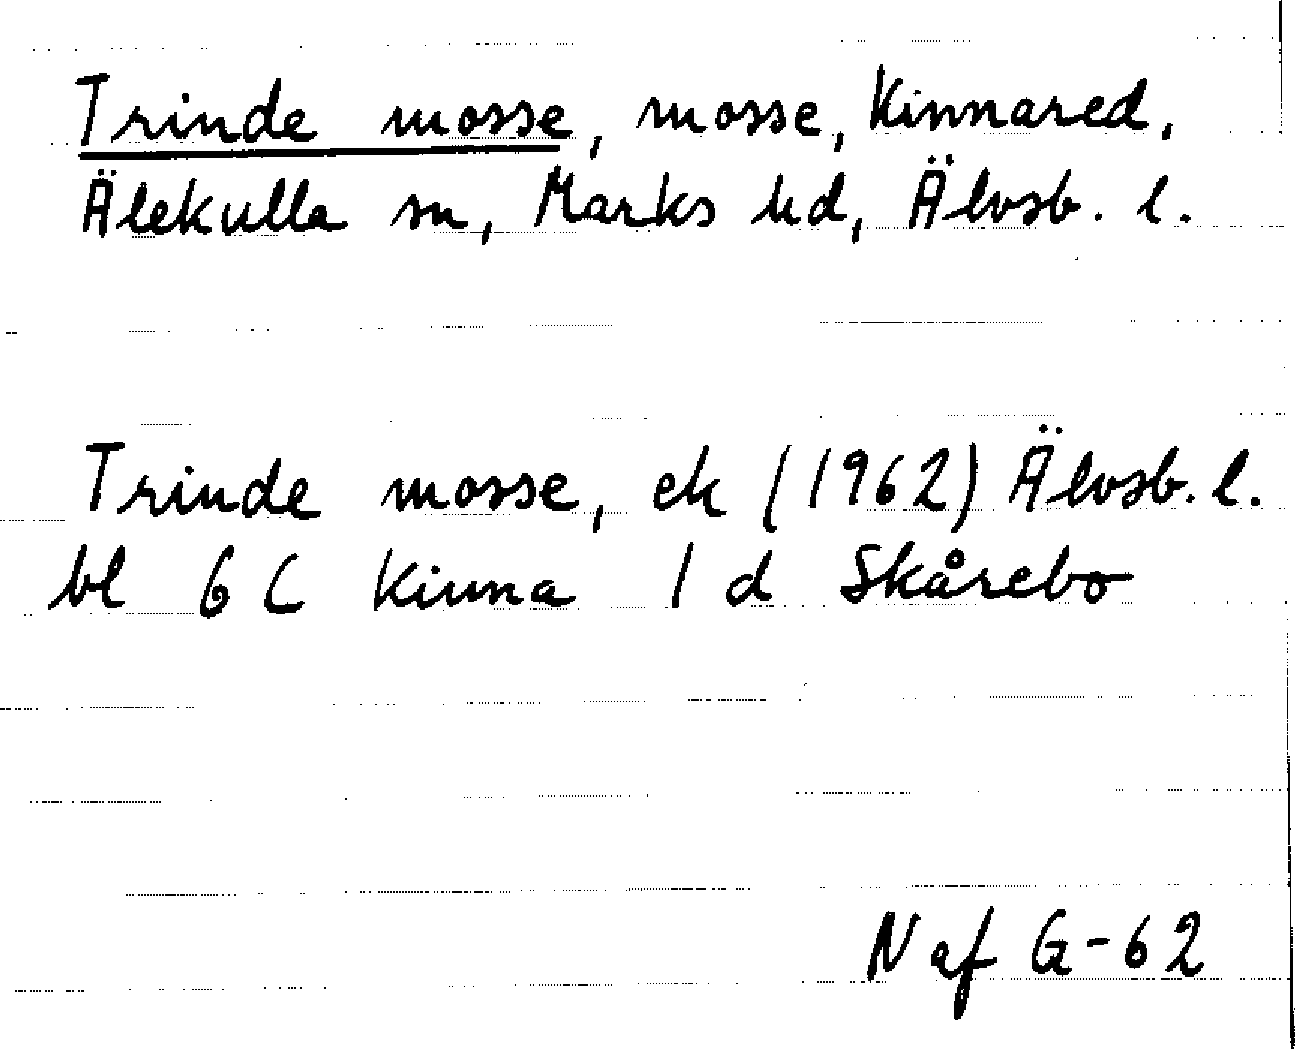 Trinde mosse, mosse, Kinnared,
Älekulla sn, Marks hd, Älvsb. l.
Trinde mosse, ek (1962) Älvsb. l.
bl 6 C Kinna 1 d Skårebo
N af G-62